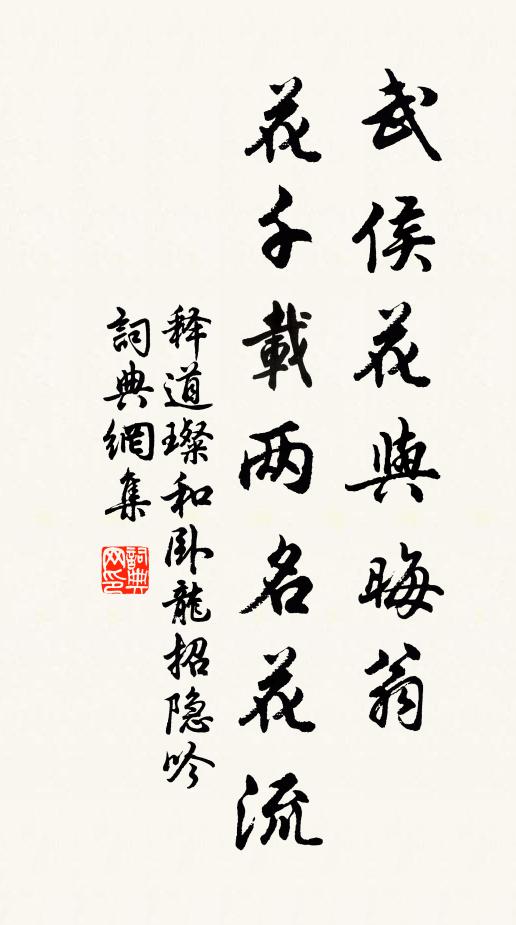 武侯花與晦翁
花千載两名花流
释道璨和卧龍招隐吟
詞典網集
詞典网印